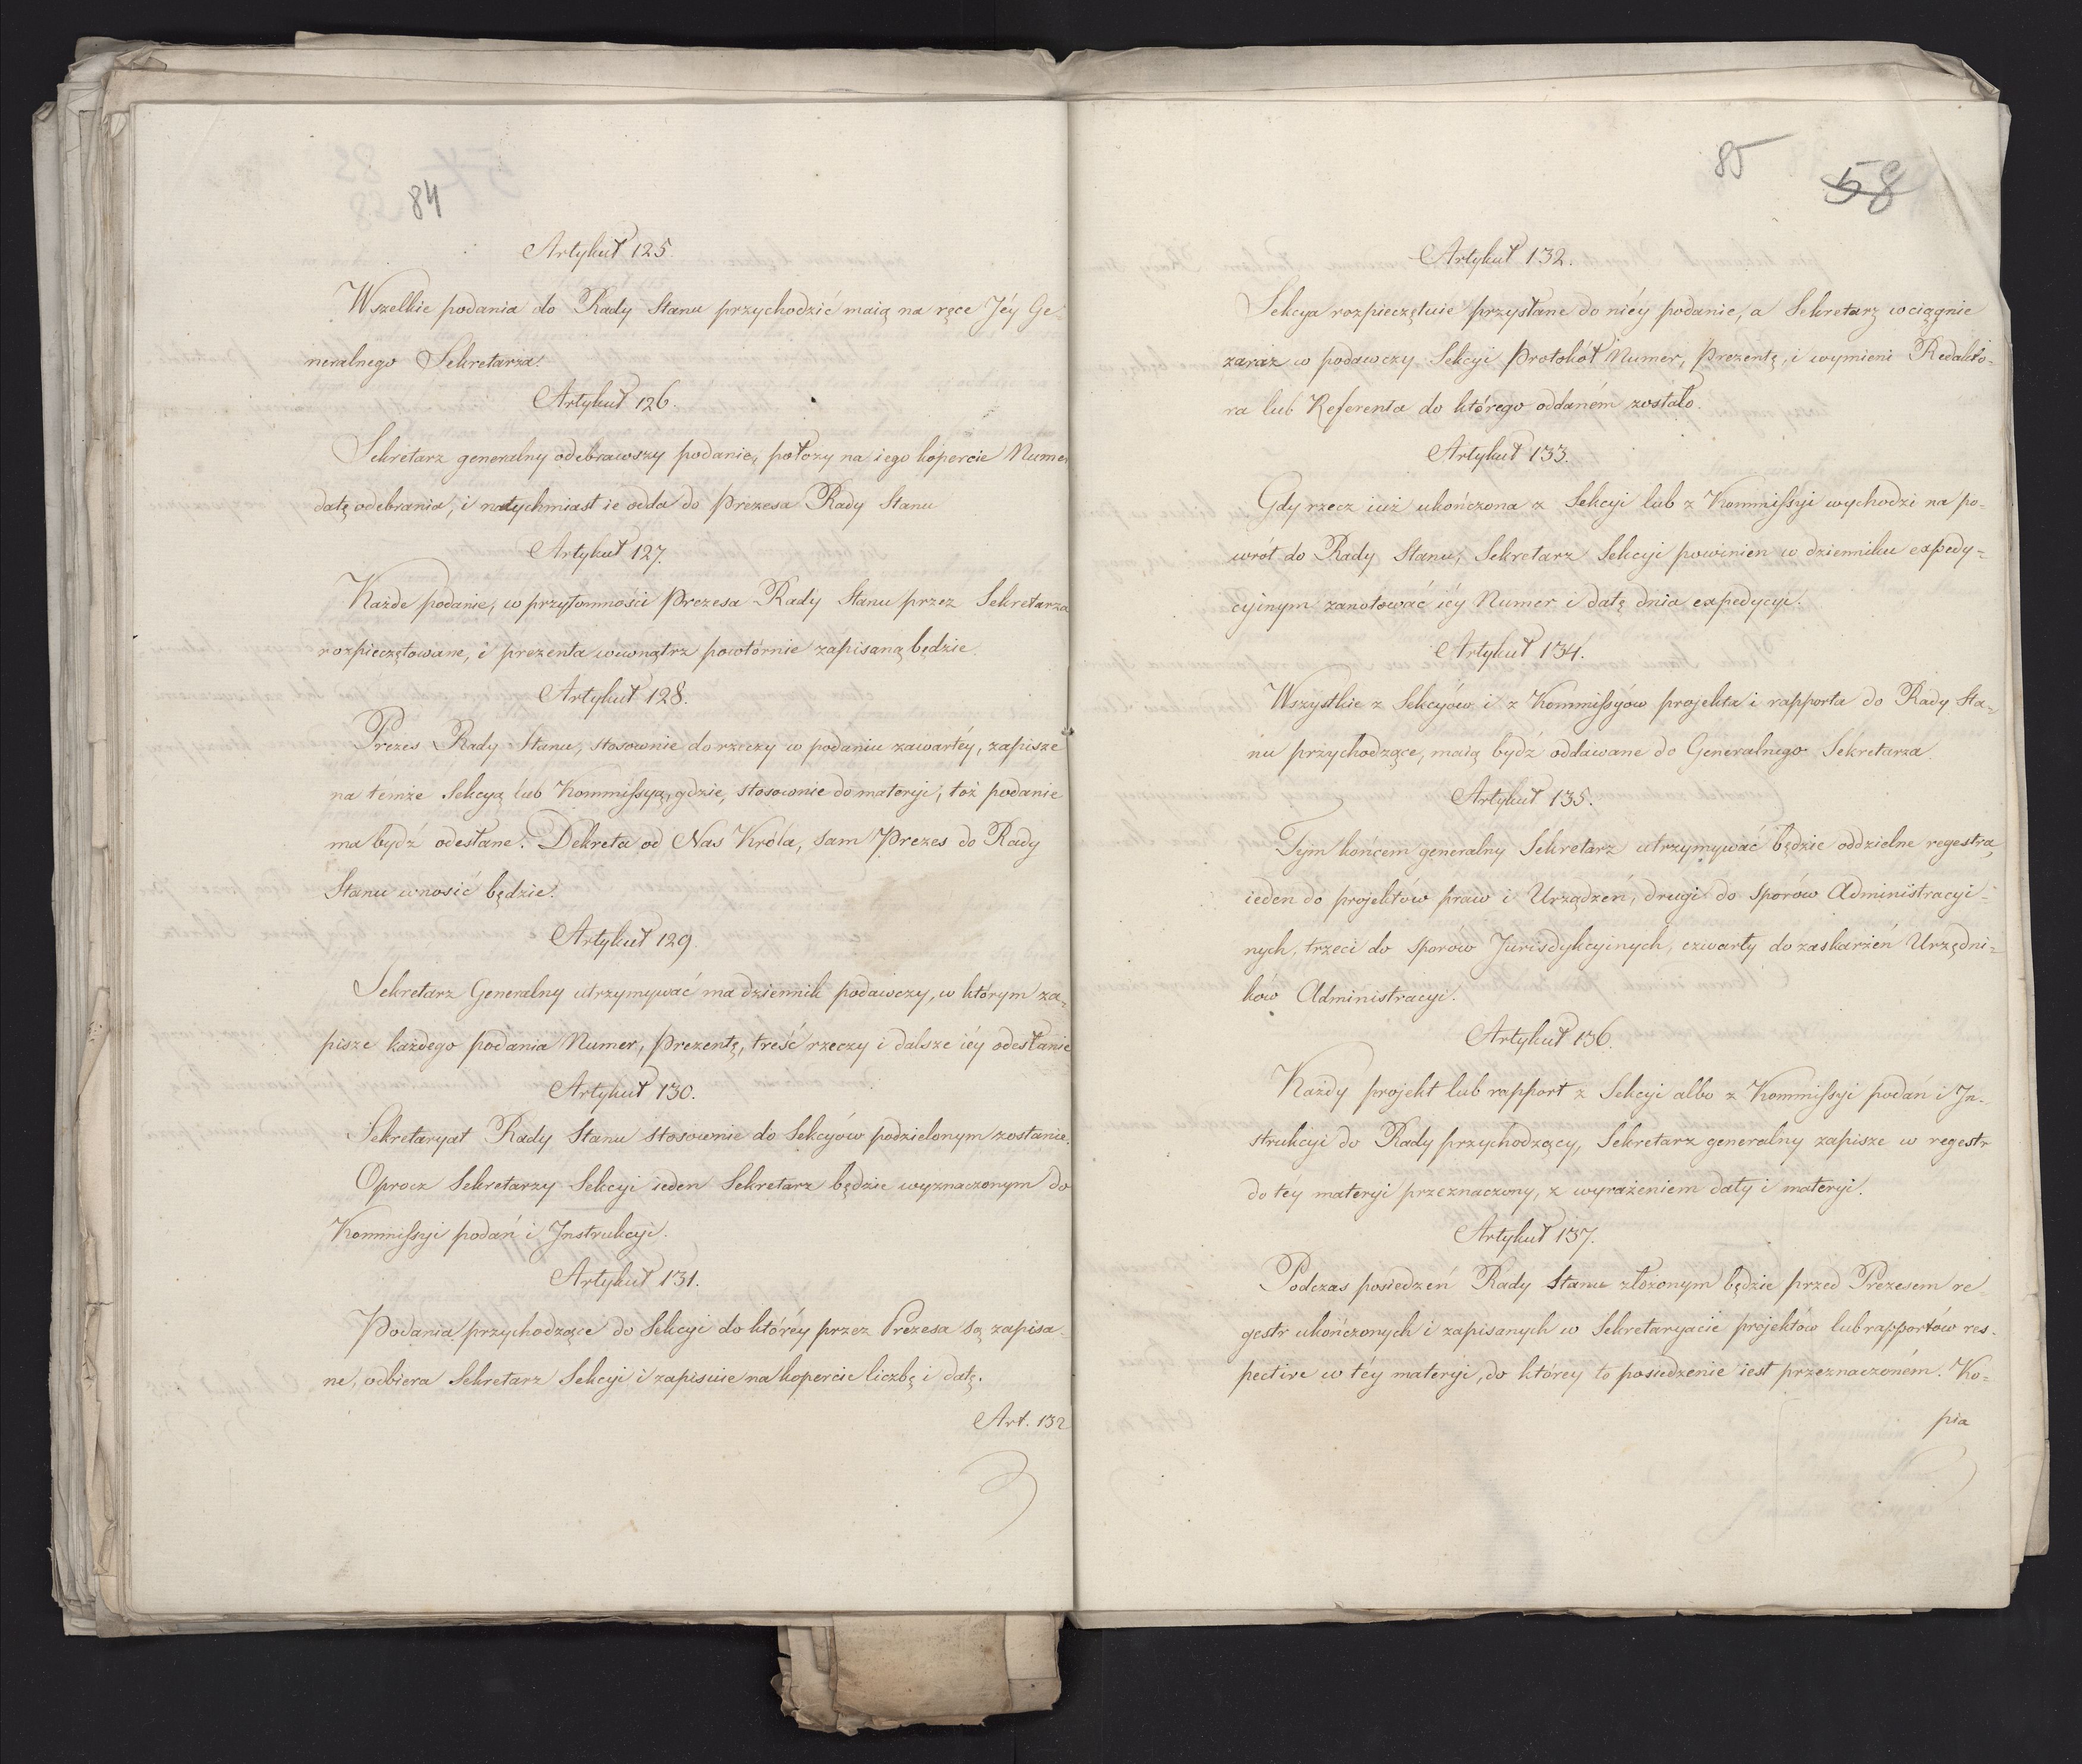 84
Artykuł 125.
Wszelkie podania do Rady Stanu przychodzić maią na ręce Jéy Ge-
neralnego Sekretarza.
Artykuł 126.
Sekretarz generalny odebrawszy podanie, położy na iego kopercie Numer
datę odebrania, i natychmiast ie odda do Prezesa Rady Stanu
Artykuł 127.
Każde podanie, w przytomności Prezesa Rady Stanu przez Sekretarza
rozpieczętowane, i prezenta wewnątrz powtórnie zapisaną będzie.
Artykuł 128.
Prezes Rady Stanu, stosownie do rzeczy w podaniu zawartéy, zapisze
na témże Sekcyą lub Kommissyą, gdzie, stosownie do materyi, toż podanie
ma bydź odesłane. Dekreta od Nas Króla, sam Prezes do Rady
Stanu wnosić będzie.
Artykuł 129.
Sekretarz Generalny utrzymywać ma dziennik podawczy, w którym za-
pisze każdego podania Numer, Prezentę, treść rzeczy i dalsze iéy odesłanie
Artykuł 130.
Sekretaryat Rady Stanu stosownie do Sekcyów podzielonym zostanie.
Oprocz Sekretarzy Sekcyi ieden Sekretarz będzie wyznaczonym do
Kommissyi podań i Instrukcyi.
Artykuł 131.
Podania przychodzące do Sekcyi do któréy przez Prezesa są zapisa-
ne, odbiera Sekretarz Sekcyi i zapisuie na kopercie liczbę i datę.
Art. 132
85
58
Artykuł 132.
Sekcya rozpieczętuie przysłane do niéy podanie, a Sekretarz wciągnie
zaraz w podawczy Sekcyi Protokół Numer, Prezentę, i wymieni Redakto-
ra lub Referenta do którego oddaném zostało.
Artykuł 133.
Gdy rzecz iuż ukończona z Sekcyi lub z Kommissyi wychodzi na po-
wrót do Rady Stanu, Sekretarz Sekcyi powinien w dzienniku expedy-
cyinym zanotować iéy Numer i datę dnia expedycyi.
Artykuł 134.
Wszystkie z Sekcyów i z Kommissyów projekta i rapporta do Rady Sta-
nu przychodzące, maią bydź oddawane do Generalnego Sekretarza
Artykuł 135.
Tym końcem generalny Sekretarz utrzymywać będzie oddzielne regestra,
ieden do projektów praw i Urządzeń, drugi do sporów Administracyi-
nych, trzeci do sporow Jurisdykcyinych, czwarty do zaskarżeń Urzędni-
ków Administracyi.
Artykuł 136.
Każdy projekt lub rapport z Sekcyi albo z Kommissyi podań i In-
strukcyi do Rady przychodzący, Sekretarz generalny zapisze w regestr
do téy materyi przeznaczony, z wyrażeniem daty i materyi.
Artykuł 137.
Podczas posiedzeń Rady Stanu złożonym będzie przed Prezesem re-
gestr ukończonych i zapisanych w Sekretaryacie projektów lub rapportów res-
pective w téy materyi, do którey to posiedzenie iest przeznaczoném. Ko-
pia